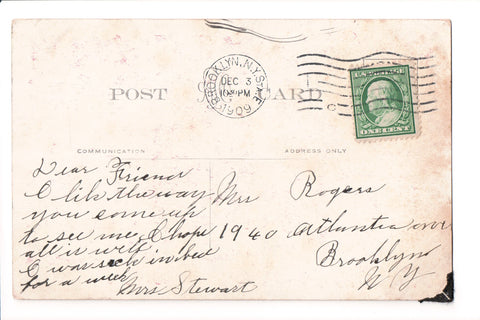 BROOKLYN, N.Y. STA.
DEC 3
10 30 PM
1909
POST CARD
ONE CENT
COMMUNICATION
ADDRESS ONLY
Dear Friend
I like the way
you come up
to see me, I hope
all is well
I was sick in bed
for a week
Mrs Stewart
Mrs Rogers
1940 Atlantic ave
Brooklyn
N Y